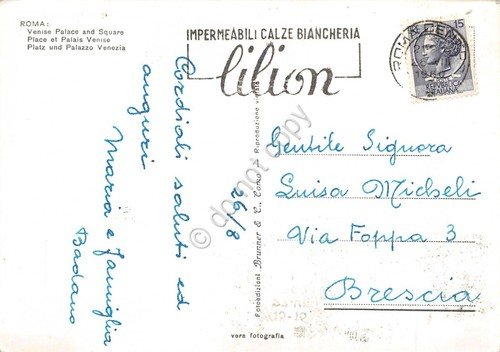 ROMA:
Venise Palace and Square
Place et Palais Venise
Platz und Palazzo Venezia
IMPERMEABILI CALZE BIANCHERIA
lilion
15
ROMA CENTRO
Cordiali saluti ed
auguri
Maria e famiglia
Badano
26/8
Fotoedizioni Brunner & C., Como
Riproduzione vietata
Gentile Signora
Luisa Micheli
Via Foppa 3
Brescia
vera fotografia
damot copy